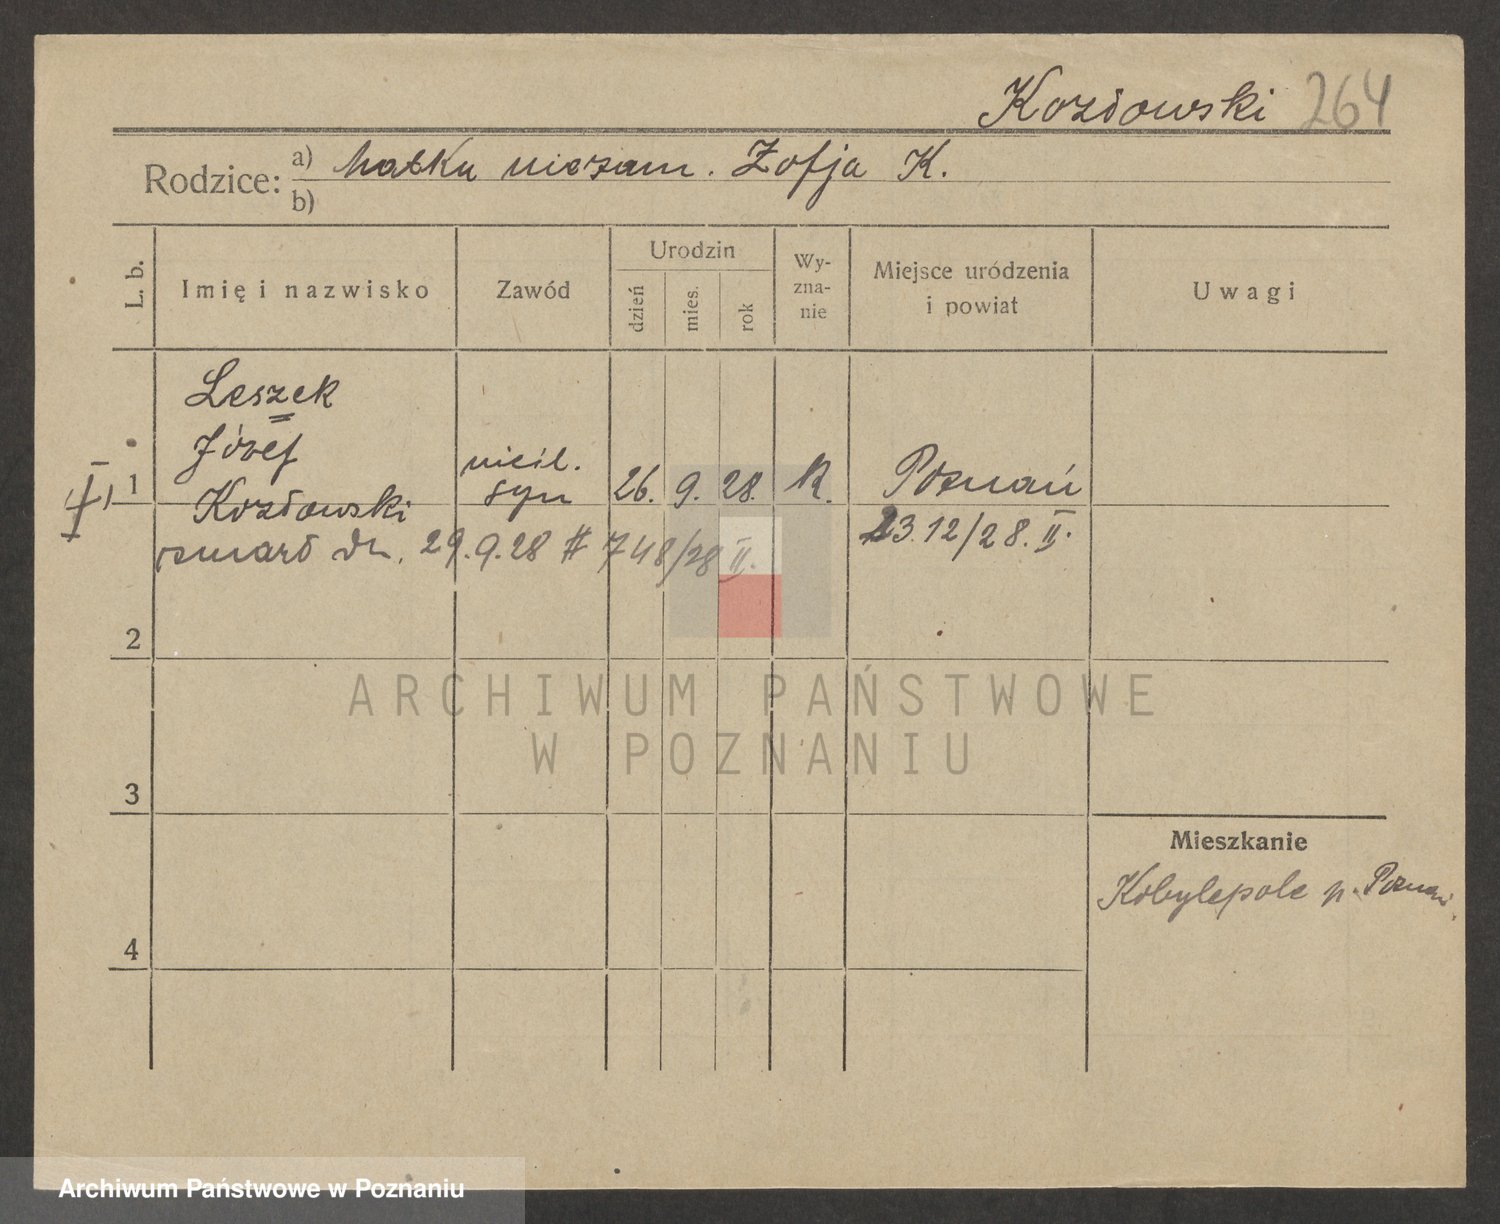 Kozłowski 264
Rodzice: a) Matka niezam. Zofja K.
b)
L. b.
Imię i nazwisko
Zawód
Urodzin
dzień
mies.
rok
Wy-
zna-
nie
Miejsce uródzenia
i powiat
Uwagi
Leszek
Józef
1 Kozłowski
nieśl.
syn
26. 9. 28.
K.
Poznań
zmarł dn. 29.9.28 # 748/28 II.
23.12/28. II.
2
ARCHIWUM PAŃSTWOWE
W POZNANIU
3
Mieszkanie
Kobylepole p. Poznań
4
Archiwum Państwowe w Poznaniu